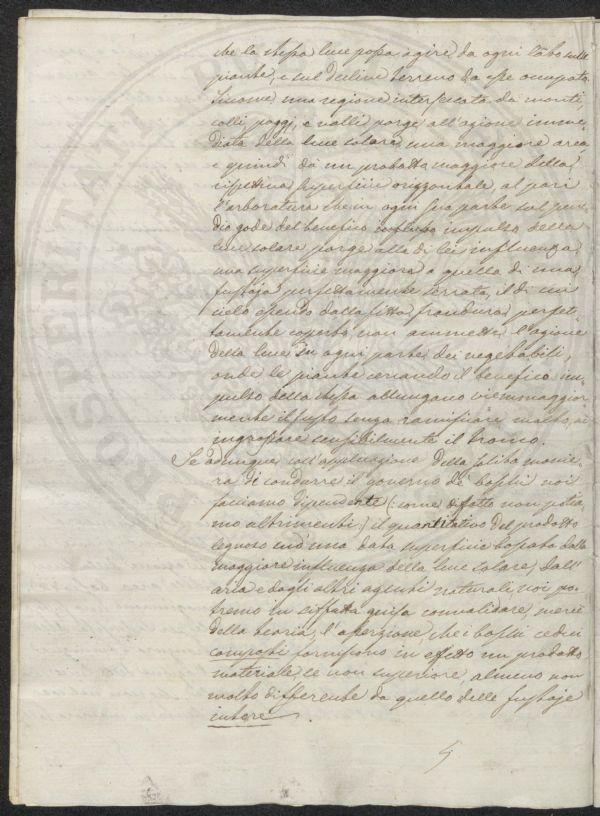 che la stessa luce possa agire da ogni lato sulle
piante, e sul declive terreno da esse occupato.
Siccome una regione intersecata da monti
colli poggj, e valli porge all'azione imme-
diata della luce solare una maggiore area
e quindi dà un prodotto maggiore della
rispettiva superficie orizzontale, al pari
l'arboratura che in ogni sua parte sul pen-
dio gode del benefico influsso impulso della
luce solare porge alla di lei influenza
una superficie maggiore a quella di una
fustaja perfettamente serrata, il di cui
cielo essendo dalla fitta frondura perfet-
tamente coperto, non ammette l'azione
della luce in ogni parte dei vegetabili,
onde le piante cercando il benefico im-
pulso della stessa allungano viemmaggior
mente il fusto senza ramificare molto, ed
ingrossare sensibilmente il tronco.
Se adunque coll'applicazione della solita manie-
ra di condurre il governo de' boschi noi
facciamo dipendente (: come difatto non potia-
mo altrimenti :) il quantitativo del prodotto
legnoso sud'una data superficie boscata dalla
maggiore influenza della luce solare, dall'
aria e dagli altri agenti naturali, noi po-
tremo in siffatta guisa convalidare, mercè
della teoria, l'asserzione, che i boschi cedui
composti forniscono in effetto un prodotto
materiale, se non superiore, almeno non
molto differente da quello delle fustaje
intere.